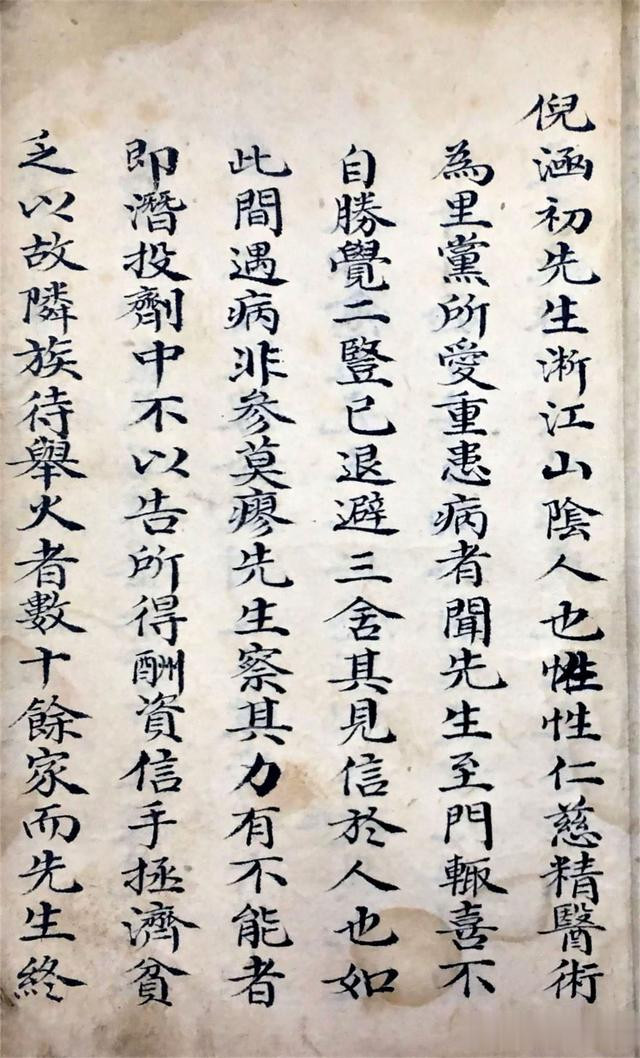 倪涵初先生淅江山陰人也性性仁慈精醫術
為里黨所愛重患病者聞先生至門輙喜不
自勝覺二豎已退避三舍其見信於人也如
此間遇病非參莫廖先生察其力有不能者
即潛投劑中不以告所得酬資信手拯濟貧
乏以故隣族待舉火者數十餘家而先生終